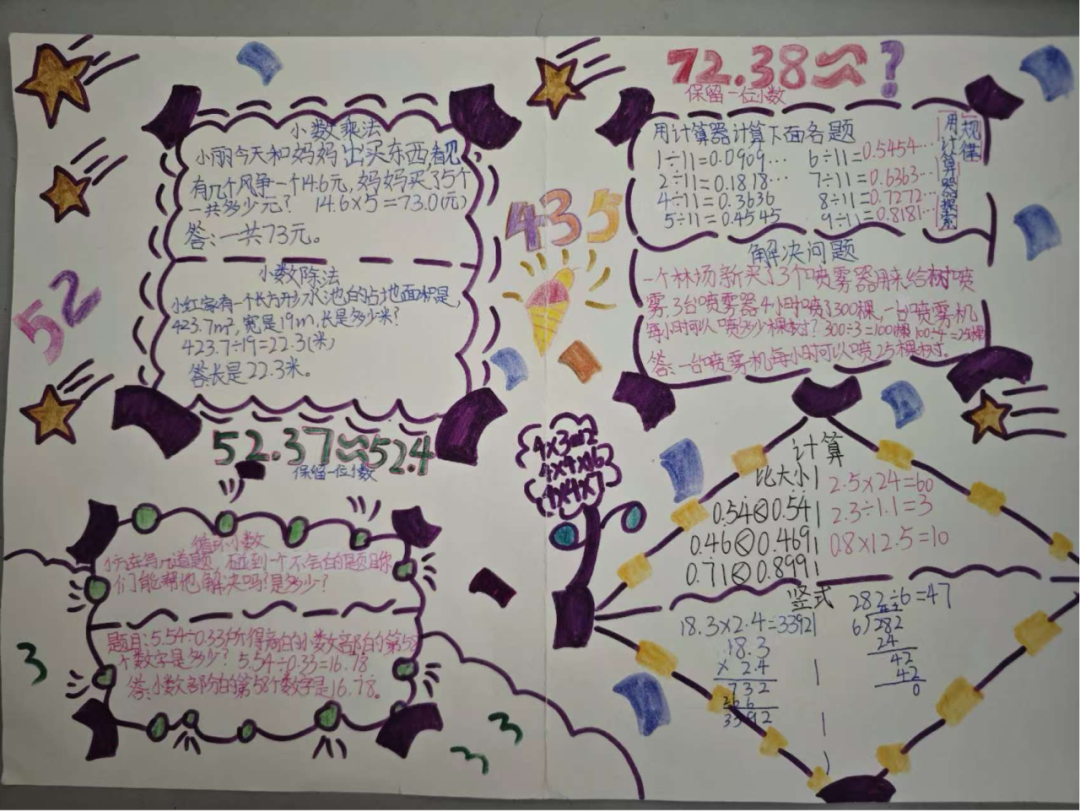 小数乘法
小丽今天和妈妈出买东西,看见
有几个风筝一个14.6元,妈妈买了5个
一共多少元? 14.6×5=73.0(元)
答:一共73元。
小数除法
小红家有一个长方形水池的占地面积是
423.7m²,宽是19m,长是多少米?
423.7÷19=22.3(米)
答长是22.3米。
52
52.37≈52.4
保留一位小数
循环小数
碰到一个不会的题目你
们能帮他解决吗?是多少?
题目:5.54÷0.33所得商的小数部分的第58
个数字是多少? 5.54÷0.33=16.78
答:小数部分的第58个数字是16.78。
3
3
3
435
4×4=16
72.38≈?
保留一位小数
用计算器计算下面各题
1÷11=0.0909… 6÷11=0.5454…
2÷11=0.1818… 7÷11=0.6363…
4÷11=0.3636 8÷11=0.7272…
5÷11=0.4545 9÷11=0.8181…
用计算器探索
规律
解决问题
一个林场新买了3个喷雾器用来给树喷
雾.3台喷雾器4小时喷了300棵,一台喷雾机
每小时可以喷多少棵树? 300÷3=100棵 100÷4=25棵
答:一台喷雾机每小时可以喷25棵树。
计算
比大小
2.5×24=60
0.54 0.54
2.3÷1.1=3
0.46 0.469
0.8×12.5=10
0.71 0.899
竖式
18.3×2.4=3392
18.3
×2.4
732
3392
282÷6=47
6)282
24
42
42
0